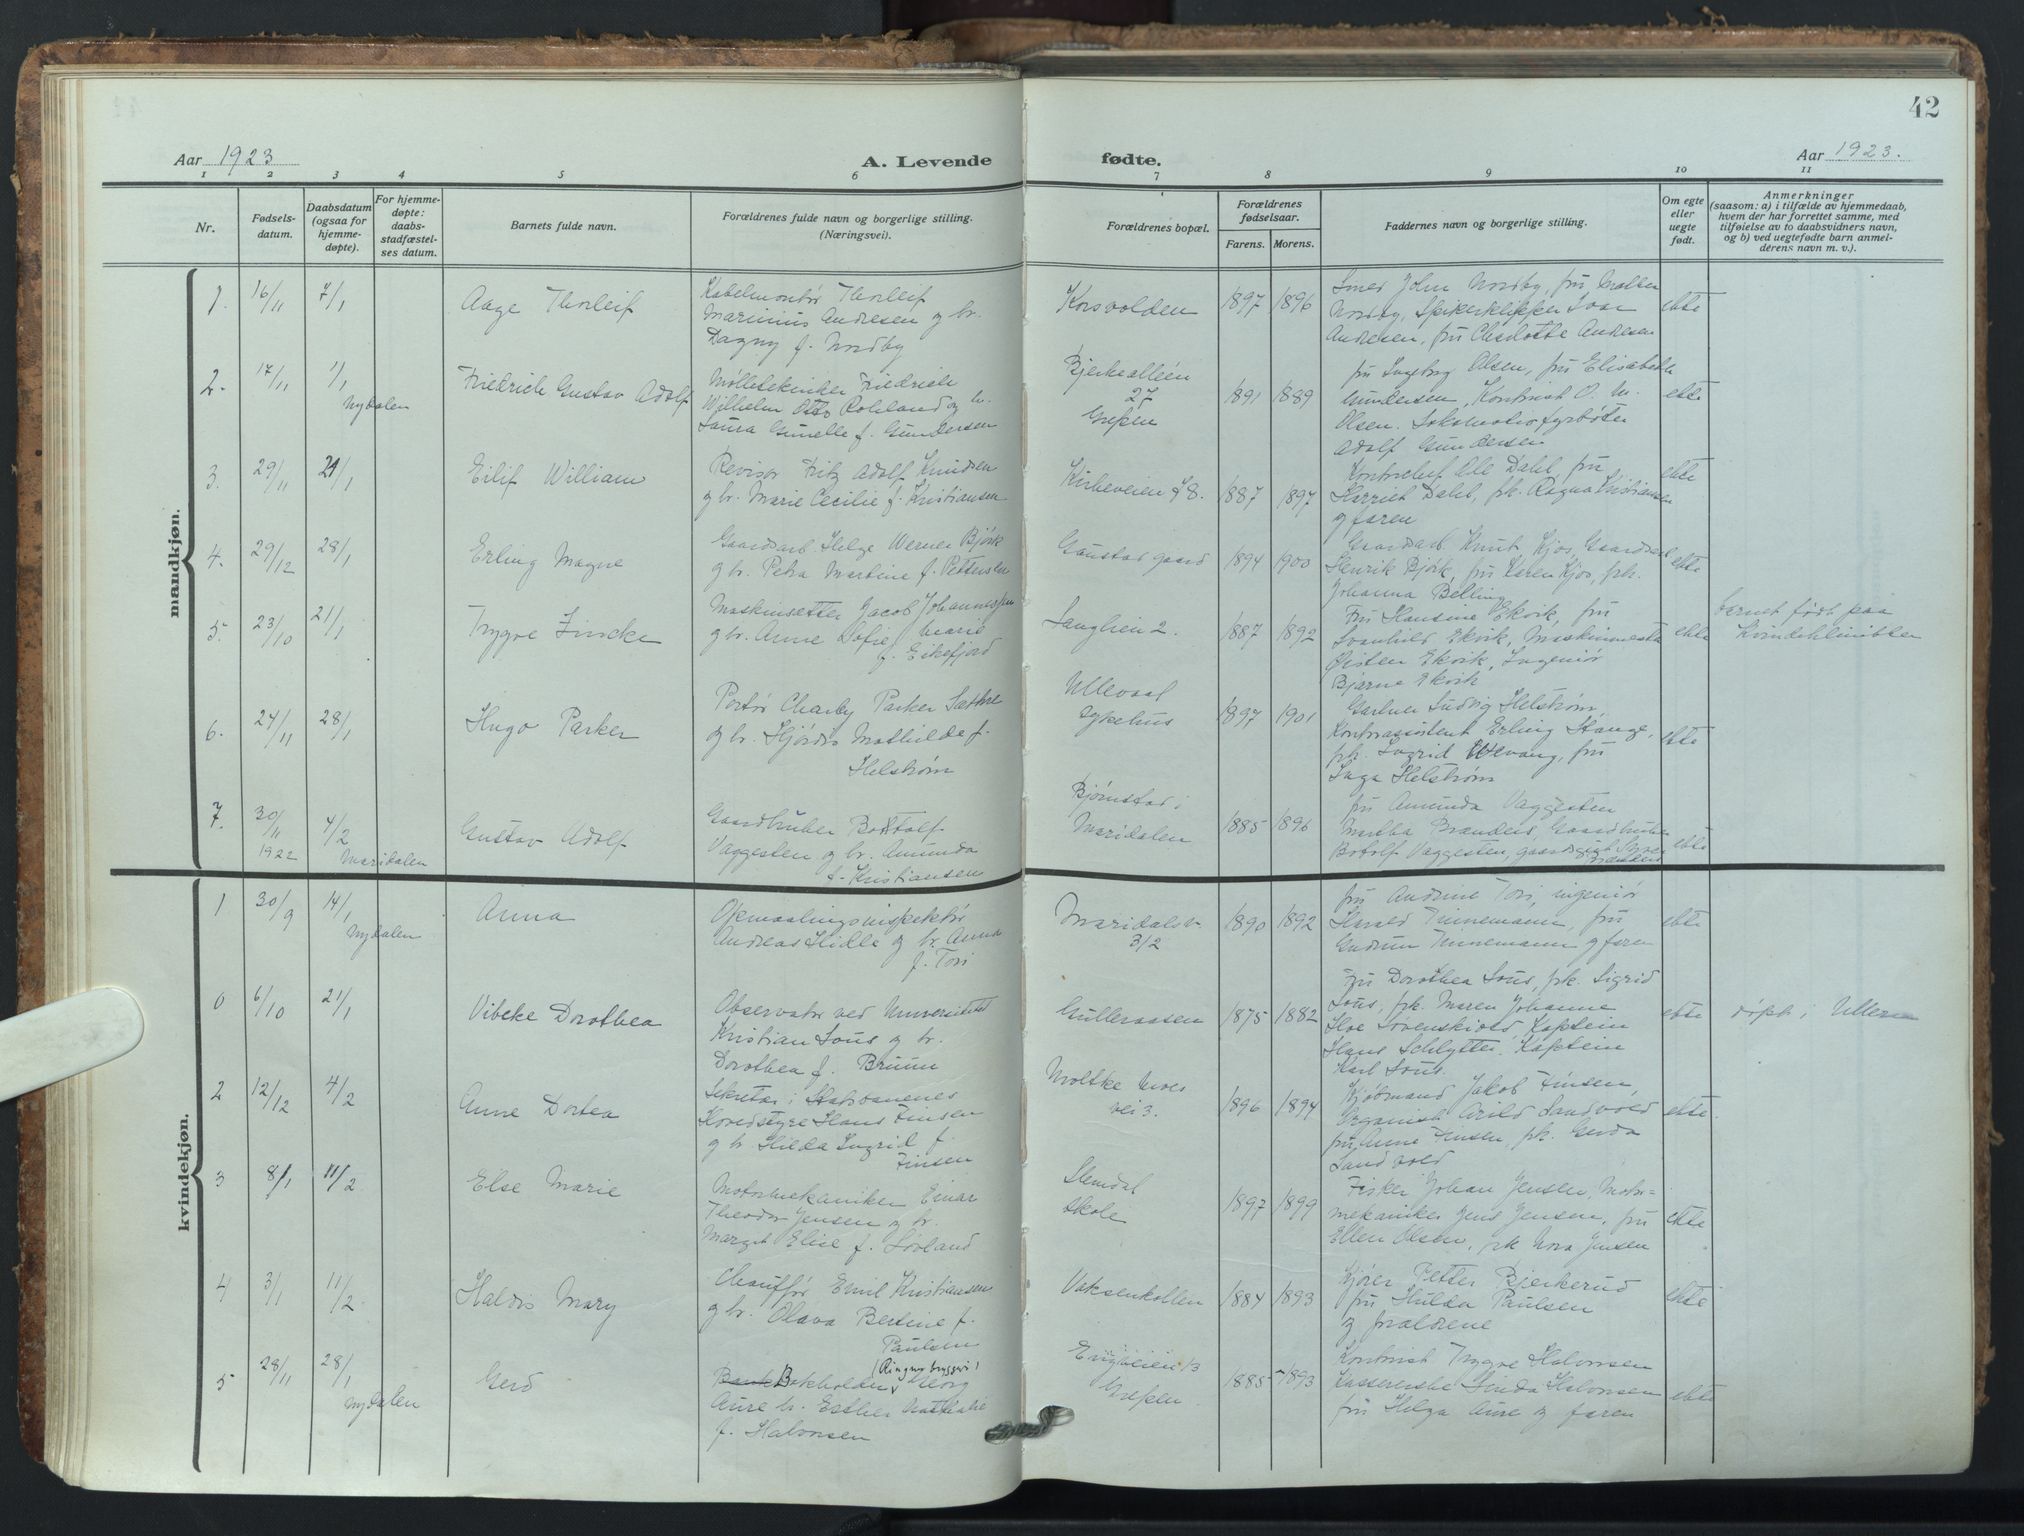 42
Aar 1923
A. Levende
fødte.
Aar 1923.
1 2 3 4 5 6 7 8 9 10 11
Nr.
Fødsels-
datum.
Daabsdatum
(ogsaa for
hjemme-
døpte).
For hjemme-
døpte:
daabs-
stadfæstel-
ses datum.
Barnets fulde navn.
Forældrenes fulde navn og borgerlige stilling.
(Næringsvei).
Forældrenes bopæl.
Forældrenes
fødselsaar.
Farens. Morens.
Faddernes navn og borgerlige stilling.
Om egte
eller
uegte
født.
Anmerkninger
(saasom: a) i tilfælde av hjemmedaab,
hvem der har forrettet samme, med
tilføielse av to daabsvidners navn,
og b) ved uegtefødte barn anmel-
derens navn m. v.).
mandkjøn.
1. 16/11 7/1
Aage Thorleif
Kabelmontør Thorleif
Marinius Andresen og hr.
Dagny f. Nordby
Korsvolden
1897 1896
Smed John Nordby, fru
Nordby, Spikerklipper Ivar
Andresen, fru Charlotte Andresen
ekte
2. 17/11 1/1
Nydalen
Friedrich Gustav Adolf
Mølletekniker Friedrich
Wilhelm Otto Rohland og h.
Laura Gunelle f. Gundersen
Bjerkealléen
27
Grefsen
1891 1889
fru Ingeborg Olsen, fru Elisabeth
Gundersen, Kontorist O. M.
Olsen. Lokomotivfyrbøter
Adolf Gundersen
ekte
3. 29/11 21/1
Eilif William
Revisor Fritz Adolf Knudsen
og hr. Marie Cecilie f. Kristiansen
Kirkeveien 78.
1887 1897
Kontorchef Ole Dahl, fru
Harriet Dahl, frk. Ragna Kristiansen
og faren
ekte
4. 29/12 28/1
Erling Magne
Gaardsarb. Helge Werner Bjørk
og hr. Petra Martine f. Pettersen
Gaustad gaard
1894 1900
Gaardsarb. Knut Kjos, Gaardsarb
Henrik Bjørk, fru Karen Kjos, frk.
Johanna Belling
ekte
5. 23/10 21/1
Trygve
Maskinsetter Jacob Johannessen
og hr. Anne Sofie Marie
f. Eikefjord
Langlien 2.
1887 1892
Fru Hansine Ekvik, fru
Svanhild Ekvik, Maskinmester
Øisten Ekvik, Ingeniør
Bjarne Ekvik
ekte
barnet født paa
Kvindeklinikken
6. 24/11 28/1
Hugo Parker
Portør Charly Parker Sæthre
og hr. Hjørdis Mathilde f.
Helstrøm
Ullevaal
sykehus
1897 1901
Gartner Ludvig Helstrøm,
Kontorassistent Erling Stange,
frk. Ingrid, fru
Inga Helstrøm
ekte
7. 30/11 1922 4/2
Maridalen
Gustav Adolf
Gaardbruker Bottolf
Vaggesten og hr. Amunda
f. Kristiansen
Bjørnstad i
Maridalen
1885 1896
fru Amunda Vaggesten
Martha Branders, Gaardbruker
Botolf Vaggesten, gaardsgut
ekte
kvindekjøn.
1 30/9 14/1
Nydalen
Anna
Opmaalingsinspektør
Andreas Hidle og hr. Anna
f. Tori
Maridalsv.
312
1890 1892
fru Andrine Tori, ingeniør
Harald Tinnemann, fru
Gudrun Tinnemann og faren
ekte
0 6/10 21/1
Vibeke Dorothea
Observator ved Universitetet
Kristian Lous og hr.
Dorothea f. Bruun
Gulleraasen
1875 1882
Fru Dorothea Lous, frk. Sigrid
Lous, frk. Maren Johanne
Hoe Lovenskiold Kaptein
Hans Schlytter. Kaptein
Karl Lous.
ekte
døpt i Ullern
2 12/12 4/2
Anne Dortea
Sekretær i Statsbanenes
Hovedstyre Hans Finsen
og hr. Hilda Ingrid f.
Finsen
Moltke Moes
vei 3.
1896 1894
Kjøbmand Jakob Finsen,
Organist Arild Sandvold
fru Anne Finsen, frk. Gerda
Sandvold
ekte.
3 8/1 11/2
Else Marie
Motormekaniker Einar
Theodor Jensen og hr.
Margit Elise f. Løvland
Slemdal
skole
1897 1899
Fisker Johan Jensen, Motor-
mekaniker Jens Jensen, fru
Ellen Olsen, frk Nora Jensen
ekte
4 3/1 11/2
Haldis Mary
Chauffør Emil Kristiansen
og hr. Olava Bertine f.
Paulsen
Voksenkollen
1884 1893
Kjører Petter Bjerkerud
fru Hulda Paulsen
og forældrene
ekte
5 28/11 28/1
Nydalen
Gerd
Bokholder (Ringnes bryggeri) Georg
Aure hr. Esther Nathalie
f. Halvorsen
Engveien 13
Grefsen
1885 1893
Kontorist Trygve Halvorsen
Kassererske Linda Halvorsen
fru Helga Aure og faren
ekte